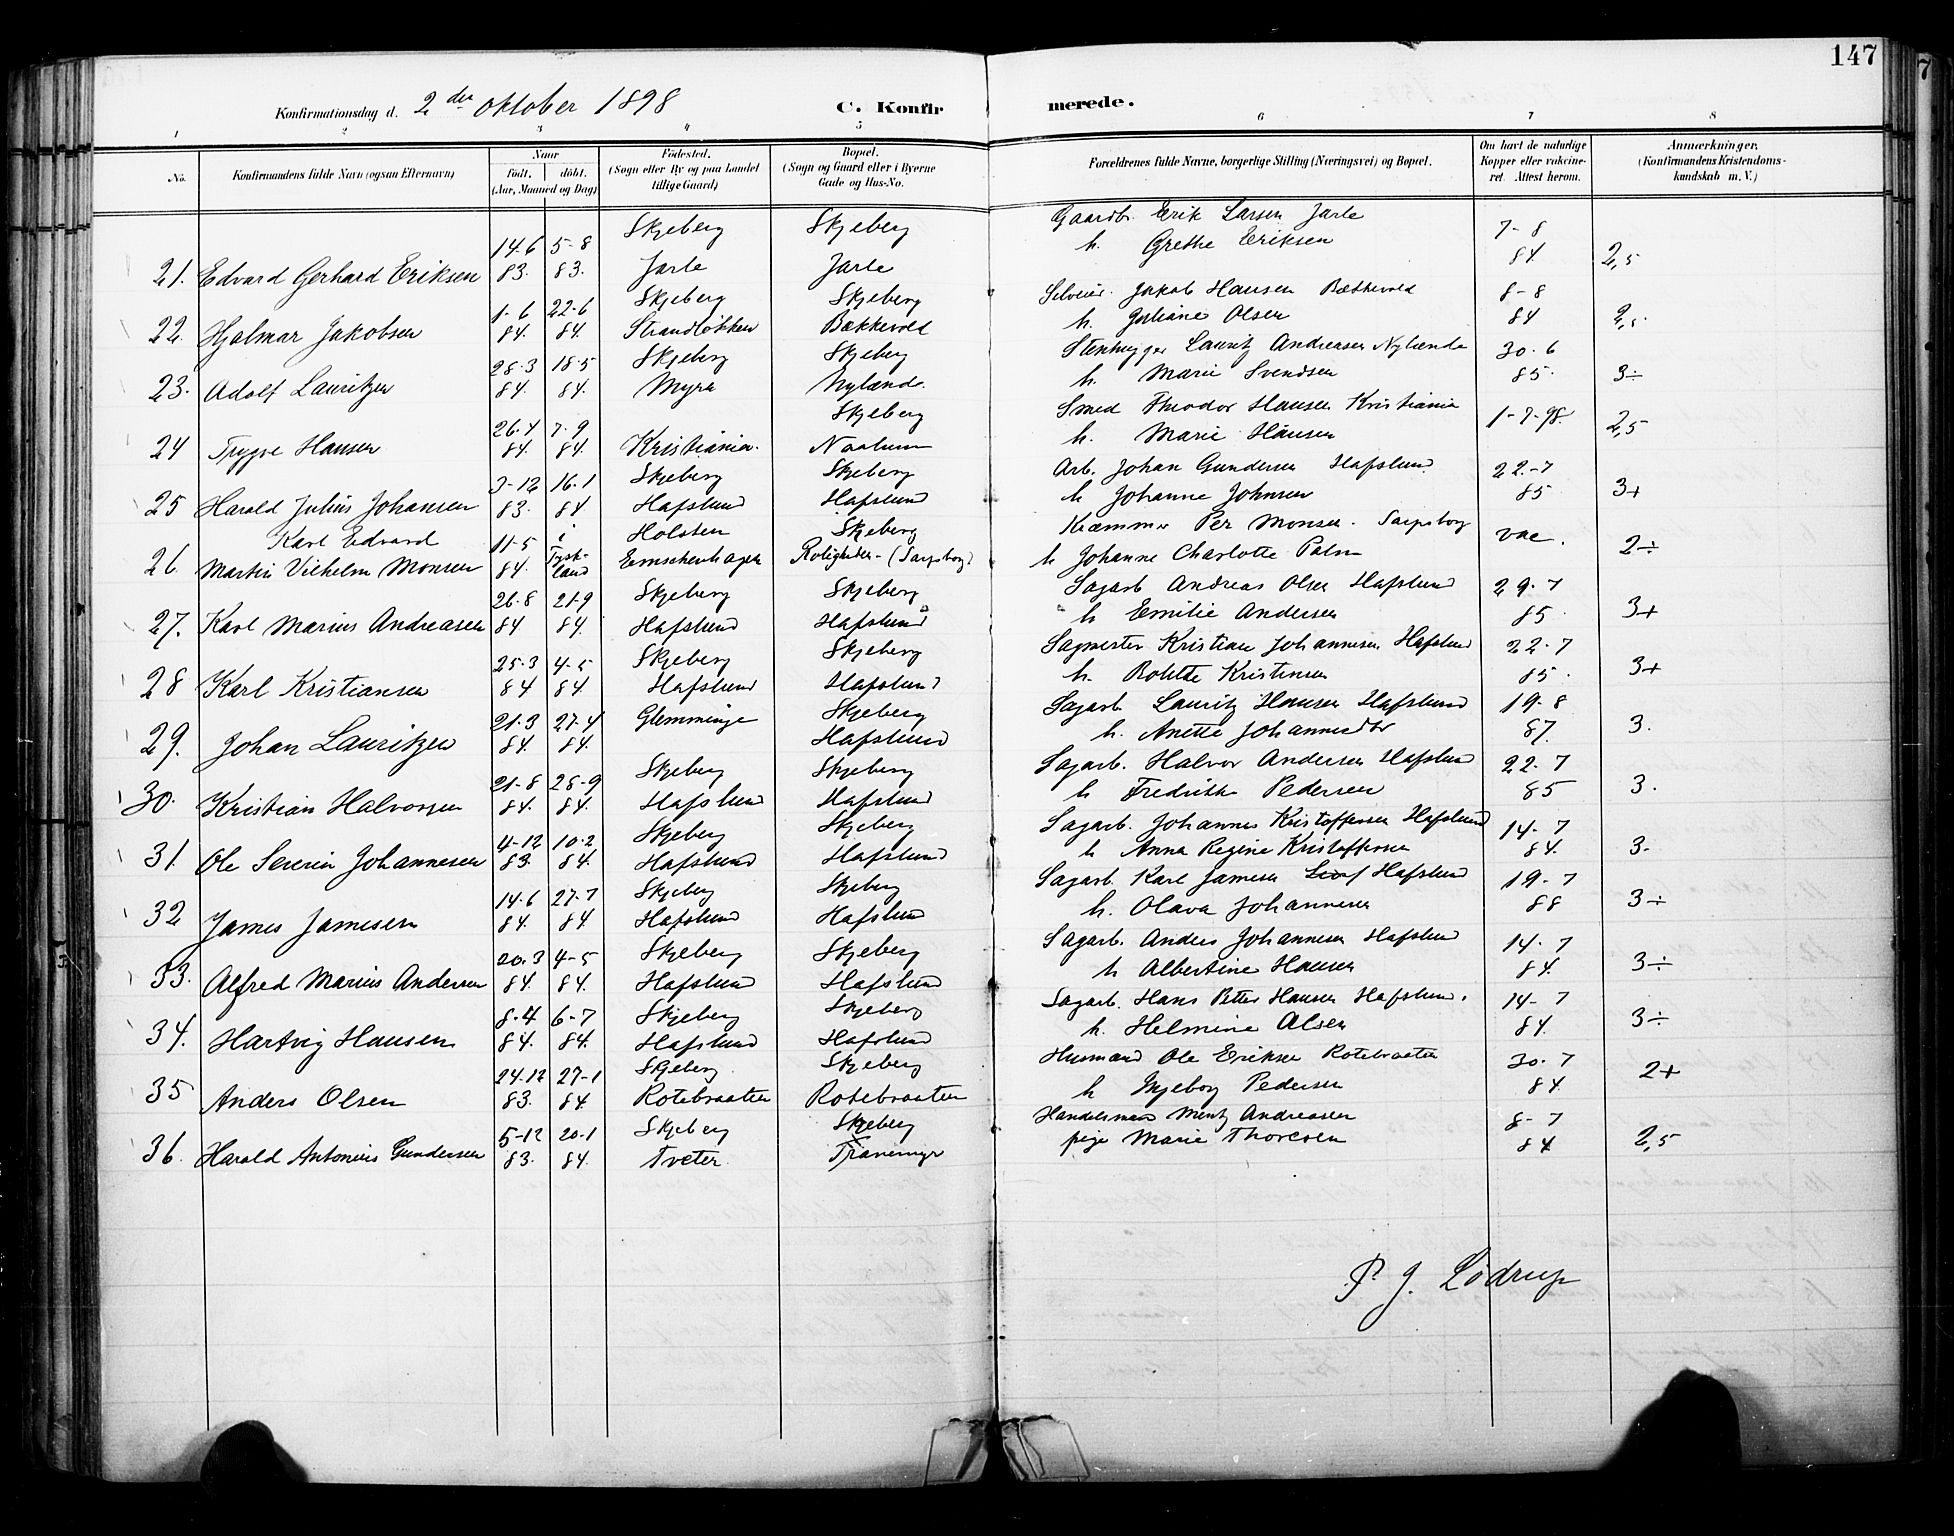 147
Konfirmationsdag d. 2 den oktober 1898
C. Konfirmerede.
1 2 3 4 5 6 7 8
No.
Konfirmandens fulde Navn (ogsaa Efternavn)
Naar
født, døbt.
(Aar, Maaned og Dag)
Fødested.
(Sogn eller By og paa Landet
tillige Gaard)
Bopæl.
(Sogn og Gaard eller i Byerne
Gade og Hus-No.
Forældrenes fulde Navne, borgerlige Stilling (Næringsvei) og Bopæl.
Om havt de naturlige
Kopper eller vaccine-
ret. Attest herom.
Anmærkninger.
(Konfirmandens Kristendoms-
kundskab m. V.)
14.6 5-8 Skjeberg Skjeberg Gaardbr. Erik Larsen Jarle 7-8
21. Edvard Gerhard Eriksen 83. 83. Jarle Jarle h. Grethe Eriksen 84 2,5
1-6 22-6 Skjeberg Skjeberg Selveier. Jakob Hansen Bækkevold 8-8
22. Hjalmar Jakobsen 84. 84. Strandløkken Bækkevold h. Juliane Olsen 84 2,5.
28.3 18.5 Skjeberg Skjeberg Stenhugger Lauritz Andreasen Nylende 30.6
23. Adolf Lauritzen 84. 84. Myra Nylænd. h. Marie Svendsen 85. 3÷
26.4 7.9 Skjeberg Smed Theodor Hansen Kristiania 1-7-98.
24 Trygve Hansen 84. 84. Kristiania. Navlum h. Marie Hansen 2,5
3-12 16.1 Skjeberg Skjeberg Arb. Johan Gundersen Hafslund 22.-7
25 Harald Julius Johansen 83. 84 Hafslund Hafslund h Johanne Johnsen 85 3+
Karl Edvard 11-5 i Holsten Skjeberg Kræmmer Per Monsen. Sarpsborg vac.
26. Martin Vilhelm Monsen 84. Tysk-land Emschenhagen Roligheden- (Sarpsborg) h Johanne Charlotte Palm 2÷
26.8 21-9 Skjeberg Skjeberg Sagarb Andreas Olsen Hafslund 29.7
27. Karl Marius Andreasen 84 84. Hafslund Hafslund h Emilie Andersen 85. 3+
25.3 4-5 Skjeberg Skjeberg Sagmester Kristian Johannesen Hafslund 22.7
28 Karl Kristiansen 84 84 Hafslund Hafslund h. Bolette Kristensen 85. 3+
21.3 27-4 Glemminge Skjeberg Sagarb Lauritz Hansen Hafslund 19.8
29. Johan Lauritzen 84. 84. Hafslund h. Anette Johannesdtr 87. 3.
21-8 28-9 Skjeberg Skjeberg Sagarb. Halvor Andersen Hafslund 22.7
30. Kristian Halvorsen 84. 84. Hafslund Hafslund h Fredrikke Pedersen 85 3.
4-12 10-2 Skjeberg Skjeberg Sagarb. Johannes Kristoffersen Hafslund 14-7
31. Ole Severin Johannesen 83. 84. Hafslund Hafslund h Anna Regine Kristoffersen 84. 3.
14.6 27-7 Skjeberg Skjeberg Sagarb. Karl Jamesen Hafslund 19-7
32 James Jamesen 84. 84 Hafslund Hafslund h. Olava Johannesen 88 3÷
20.3 4-5 Skjeberg Skjeberg Sagarb. Anders Johannesen Hafslund 14-7
33. Alfred Marius Andersen 84. 84. Hafslund Hafslund h Albertine Hansen 84. 3÷
8-4 6-7 Skjeberg Skjeberg Sagarb. Hans Petter Hansen Hafslund. 14-7
34. Hartvig Hansen 84. 84. Hafslund Hafslund h. Helmine Olsen 84. 3÷
24.12 27-1 Skjeberg. Skjeberg Husmand Ole Eriksen Rotebraaten 30.7
35 Anders Olsen 83. 84. Rotebraaten Rotebraaten h Ingeborg Pedersen 84. 2+
5-12 20-1 Skjeberg Skjeberg Handelsmand Mentz Andreasen 8-7
36. Harald Antonius Gundersen 83. 84. Tveter. Tranemyr pige Marie Thoresen 84 2,5
P. J. Lødrup